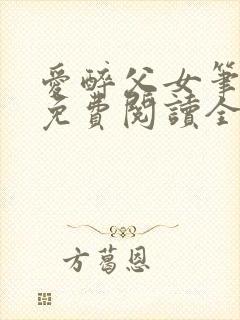 愛醉父女筆
免費閱讀全
方葛恩